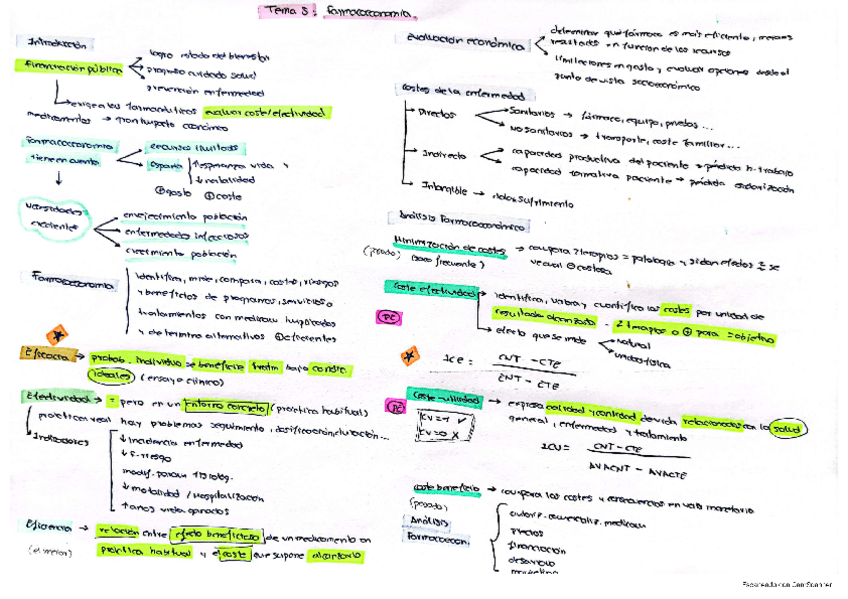 Tema 5: Farmacoeconomía.
Introducción
Financiación pública
logro estado del bienestar
progreso cuidado salud
prevención enfermedad
exigen a los farmacéuticos evaluar coste/efectividad
medicamentos → gran impacto económico
Farmacoeconomía
tiene en cuenta
recursos limitados
España
↑ esperanza vida y
↓ natalidad
⊕ gasto ⊕ coste
Necesidades
crecientes
envejecimiento población
enfermedades infecciosas
crecimiento población
Farmacoeconomía
identifica, mide, compara, costes, riesgos
y beneficios de programas, servicios o
tratamientos con medicam
y determina alternativas
Eficacia → probab. individuo se beneficie tratm bajo condic.
ideales (ensayo clínico)
Efectividad → = pero en un entorno concreto (práctica habitual)
práctica real hay problemas seguimiento, dosificación
Indicadores
↓ incidencia enfermedad
↓ f. riesgo
↓ mortalidad / Hospitalización
↑ años vida ganados
Eficiencia → relación entre efecto beneficioso de un medicamento en
(el mejor) práctica habitual y el coste que supone alcanzarlo
Evaluación económica
determinar qué fármaco es más eficiente, mejores
resultados en función de los recursos
limitaciones en gasto y evaluar opciones desde el
punto de vista socioeconómico
Costes de la enfermedad
Directos
Sanitarios → fármaco, equipo, pruebas ...
No sanitarios → transporte, coste familiar ...
Indirecto
capacidad productiva del paciente → pérdida h. trabajo
capacidad formativa paciente → pérdida
Intangible → dolor, sufrimiento
Análisis Farmacoeconómico
Minimización de costes → compara 2 terapias = patología y si dan efectos
(poco frecuente)
Coste efectividad
identifica, valora y cuantifica los costes por unidad de
resultado alcanzado - 2 terapias o ⊕ para = objetivo
efecto que se mide
natural
ICE = CNT - CTE
ENT - CTE
Coste-utilidad → expresa calidad y cantidad de vida relacionadas con la salud
general, enfermedad y tratamiento
ICU = CNT - CTE
AVACNT - AVACTE
coste beneficio → compara los costes y consecuencias en valor monetario
Análisis
Farmacoecon.
precios
financiación
desarrollo
marketing
Escaneado con CamScanner